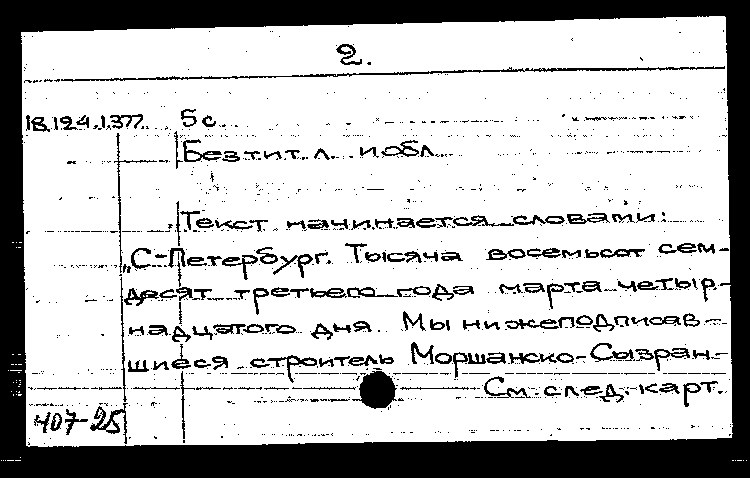 2.
18.124.1.377. 5 с.
Без тит. л. и обл.
Текст начинается словами:
„С-Петербург. Тысяча восемьсот сем-
десят третьего года марта четыр-
надцатого дня. Мы нижеподписав-
шиеся строитель Моршанско-Сызран-
См. след. карт.
407-25